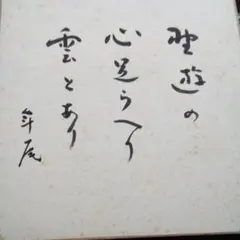 野遊の
心足らへり
雲とあり
年尾